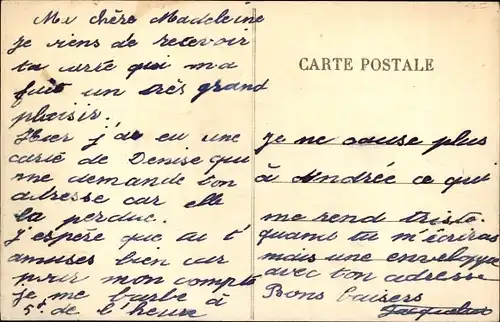 Ma chère Madeleine
je viens de recevoir
ta carte qui m'a
fait un très grand
plaisir.
Hier j'ai eu une
carte de Denise qui
me demande ton
adresse car elle
la perdue.
j'espère que tu t'
amuses bien car
pour mon compte
je me barbe à
5f de l'heure
CARTE POSTALE
Je ne cause plus
à Andrée ce qui
me rend triste.
quand tu m'écriras
mais une enveloppe
avec ton adresse
Bons baisers
Jacqueline